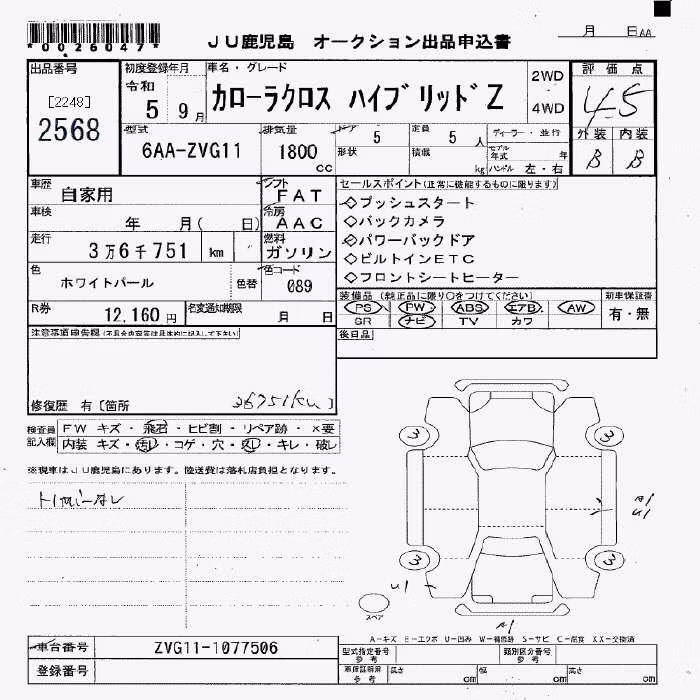 *0026047*
JU鹿児島 オークション出品申込書
月 日AA
出品番号
[2248]
2568
初度登録年月
令和
5 9月
車名・グレード
カローラクロス ハイブリッドZ
2WD
4WD
評価点
4.5
外装 内装
B B
型式
6AA-ZVG11
排気量
1800
cc
ドア 5
形状
定員 5 人
積載 kg
ディーラー・並行
モデル年式 年
ハンドル 左・右
車歴
自家用
車検
年 月( 日)
走行
3万6千751 km
色
ホワイトパール
色替
R券
12,160円
シフト
FAT
冷房
AAC
燃料
ガソリン
色コード
089
名変通知期限
月 日
セールスポイント(正常に機能するものに限ります)
◇プッシュスタート
◇バックカメラ
◇パワーバックドア
◇ビルトインETC
◇フロントシートヒーター
装備品(純正品に限り○をつけてください)
PS PW ABS エアB AW
SR ナビ TV カワ
新車保証書
有・無
後日品
注意事項申告欄(不具合内容等は具体的に記入して下さい)
修復歴 有〔箇所 36751km〕
検査員記入欄
FW キズ・飛石・ヒビ割・リペア跡・×要
内装 キズ・汚レ・コゲ・穴・スレ・キレ・破レ
※現車はJU鹿児島にあります。陸送費は落札店負担となります。
3
3
3
3
A1
U1
U1
A1
スペア
A-キズ E-エクボ U-凹み W-補修跡 S-サビ C-腐食 XX-交換済
車台番号
ZVG11-1077506
登録番号
型式指定番号
参考
類別区分番号
参考
車庫証明用
参考
長さ cm
幅 cm
高さ cm